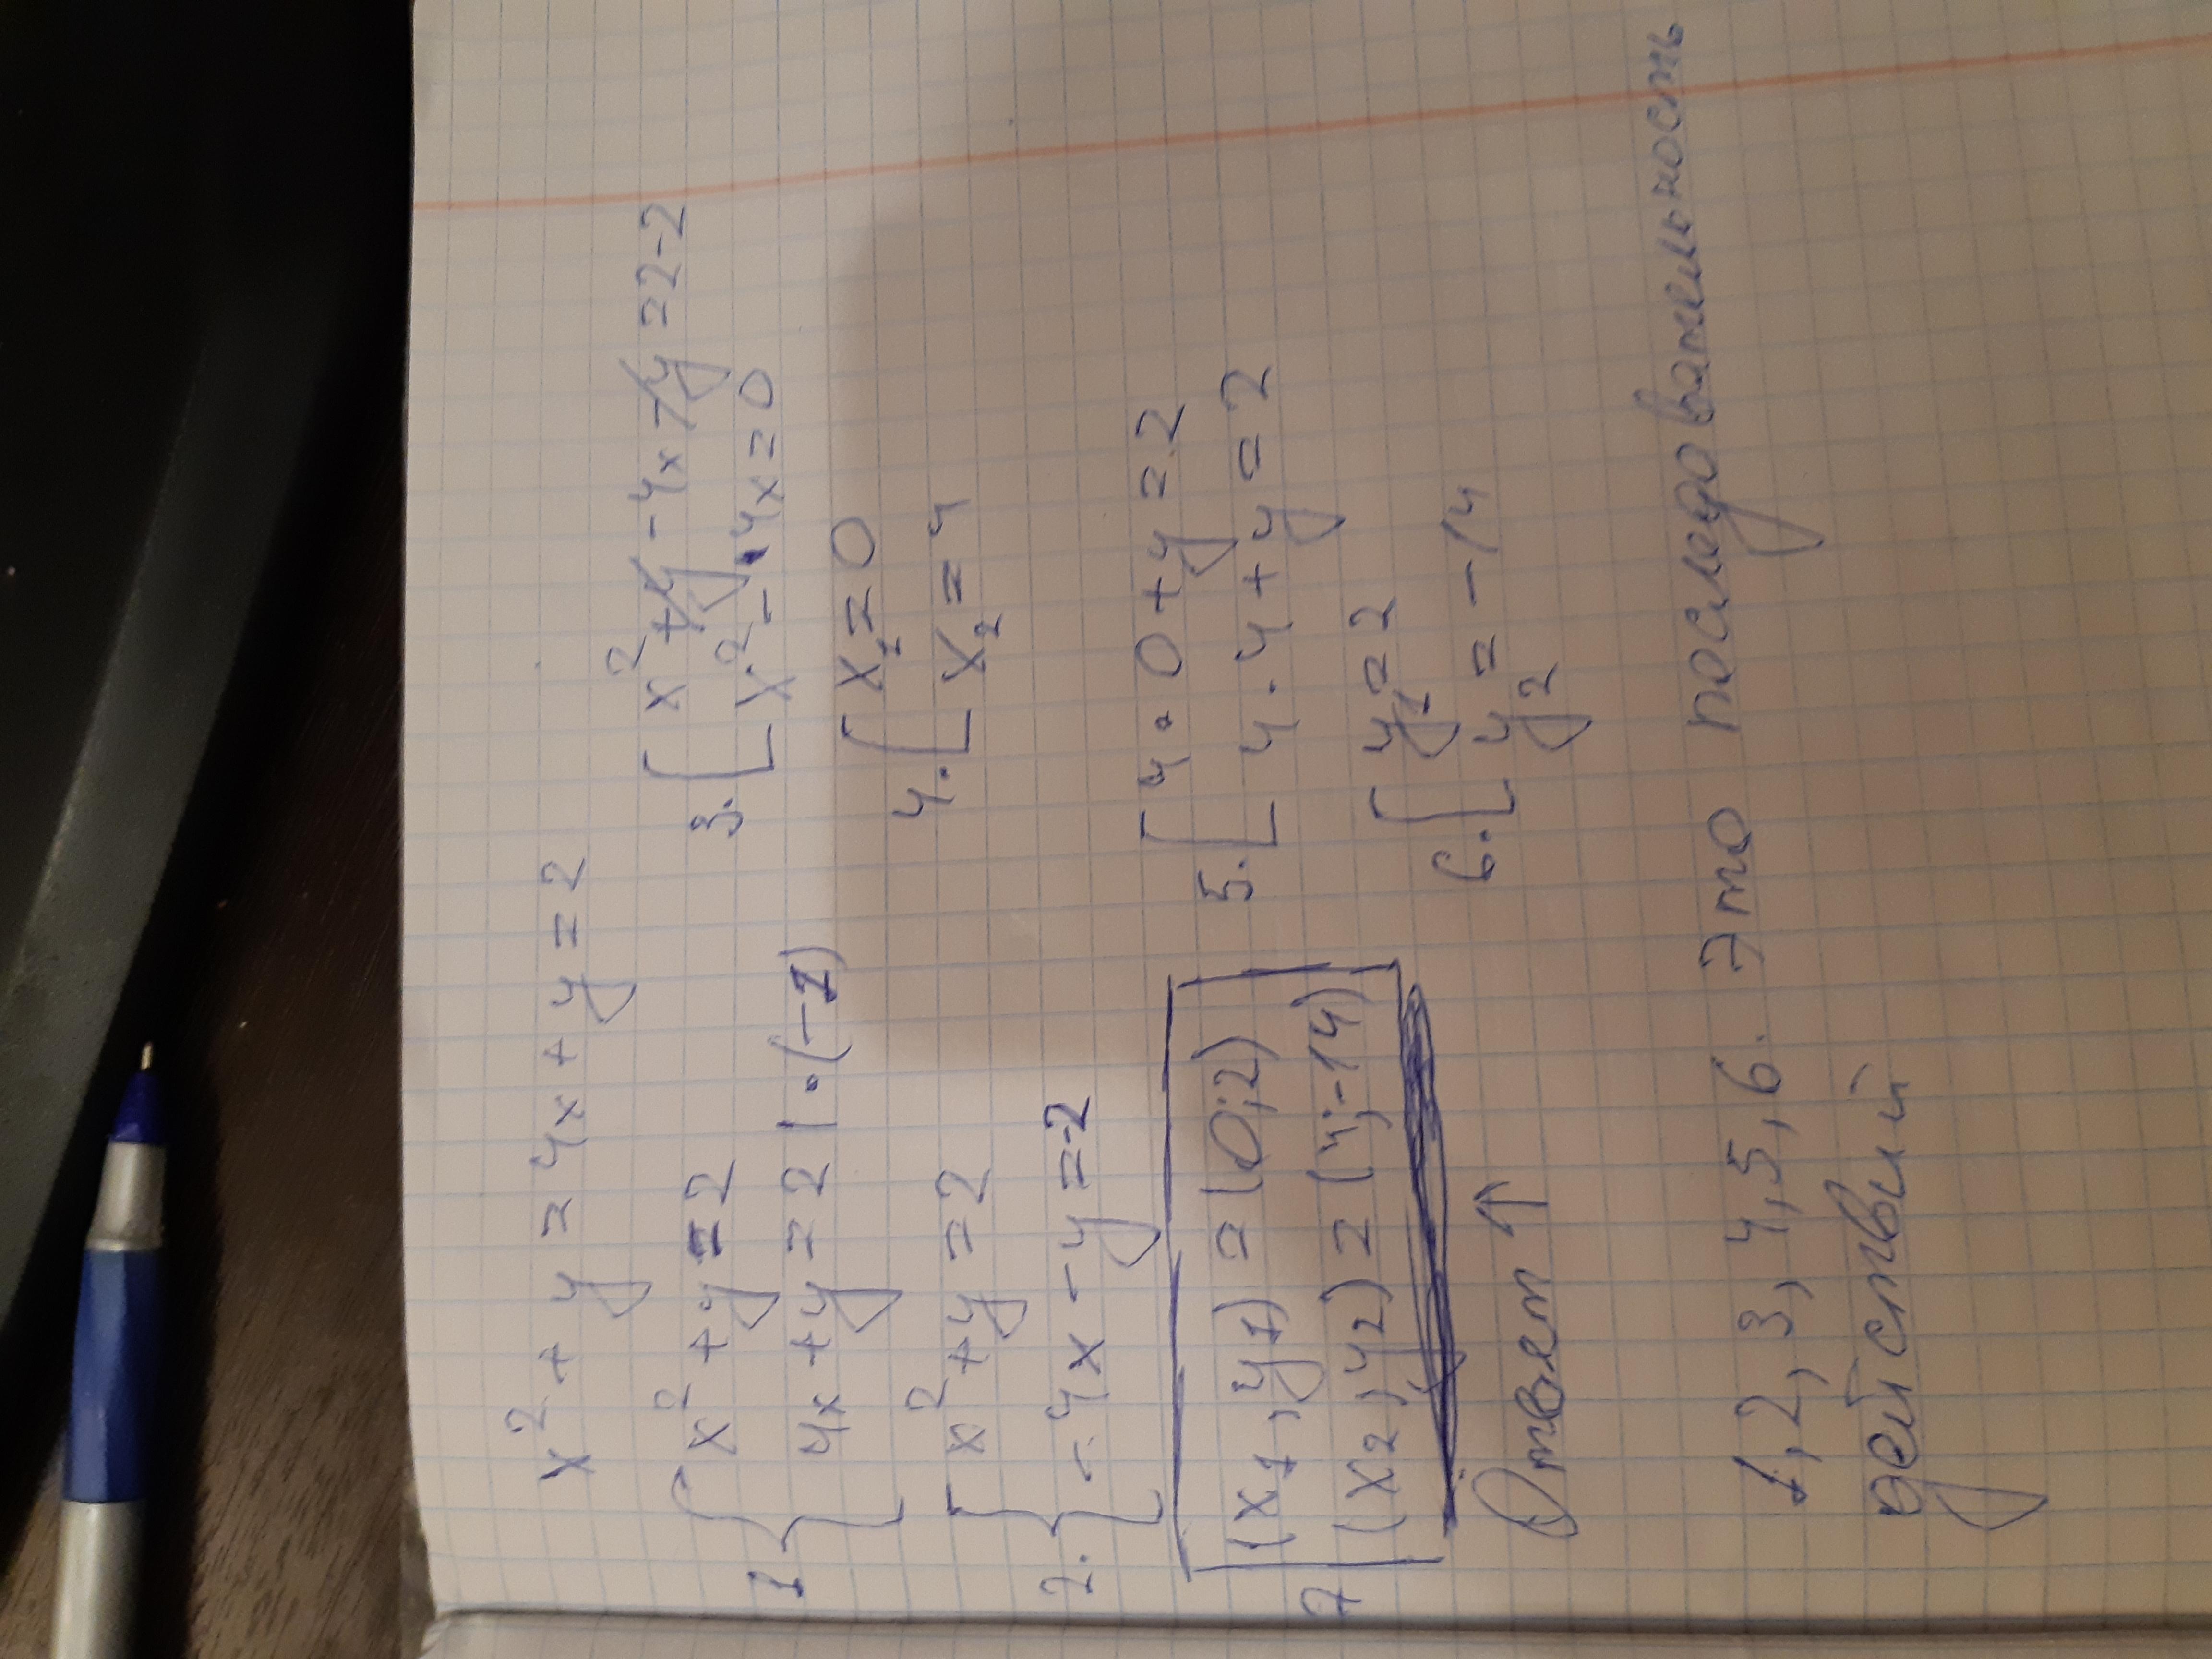 x² + y = 4x + y = 2
1 { x² + y = 2
4x + y = 2 | · (-1)
2. { x² + y = 2
-4x - y = -2
3. [ x² + y - 4x - y = 2-2
x² - 4x = 0
4. [ x₁ = 0
x₂ = 4
5. [ 4 · 0 + y = 2
4 · 4 + y = 2
6. [ y₁ = 2
y₂ = -14
7 (x₁, y₁) = (0; 2)
(x₂, y₂) = (4; -14)
Ответ ↑
1, 2, 3, 4, 5, 6. Это последовательность
действий